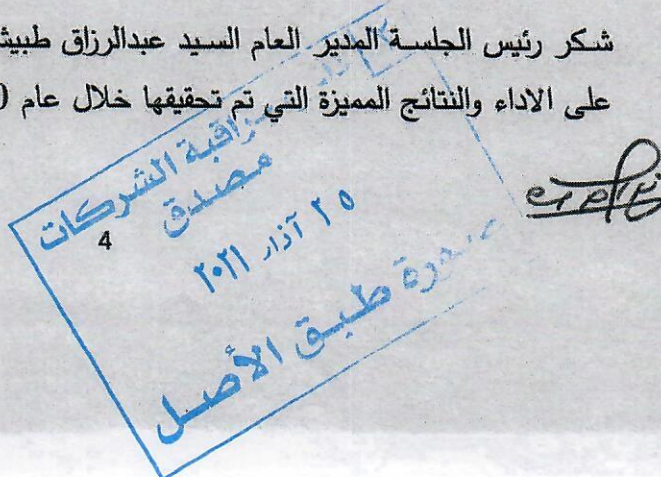 شكر رئيس الجلسة المدير العام السيد عبدالرزاق طبيش
على الاداء والنتائج المميزة التي تم تحقيقها خلال عام
مراقبة الشركات
مصدق
4
٢٥ آذار ٢٠٢١
صورة طبق الأصل